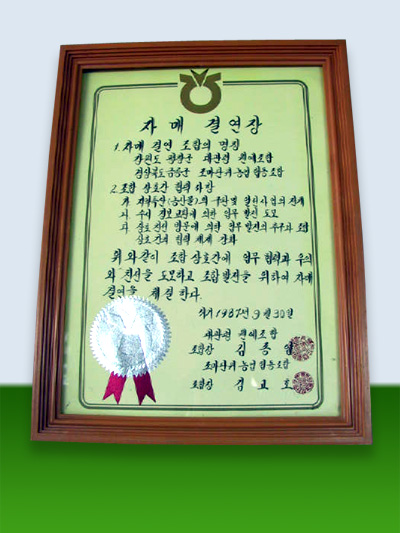 자매 결연장
1. 자매 결연 조합의 명칭
강원도 평창군 대관령 원예조합
경상북도 금릉군 조마단위 농업협동조합
2. 조합 상호간 협력 사항
가. 지역특산(농산물)의 구판 및 알선사업의 전개
나. 수시 정보교환에 의한 업무 발전 도모
다. 상호 친선 방문에 의한 업무 발전의 추구와 조합
상호간의 협력 체제 강화
위와같이 조합 상호간에 업무 협력과 우의
와 친선을 도모하고 조합발전을 위하여 자매
결연을 체결한다.
서기 1987년 9월 30일
대관령 원예조합
조합장 김종
조마단위 농업협동조합
조합장 호